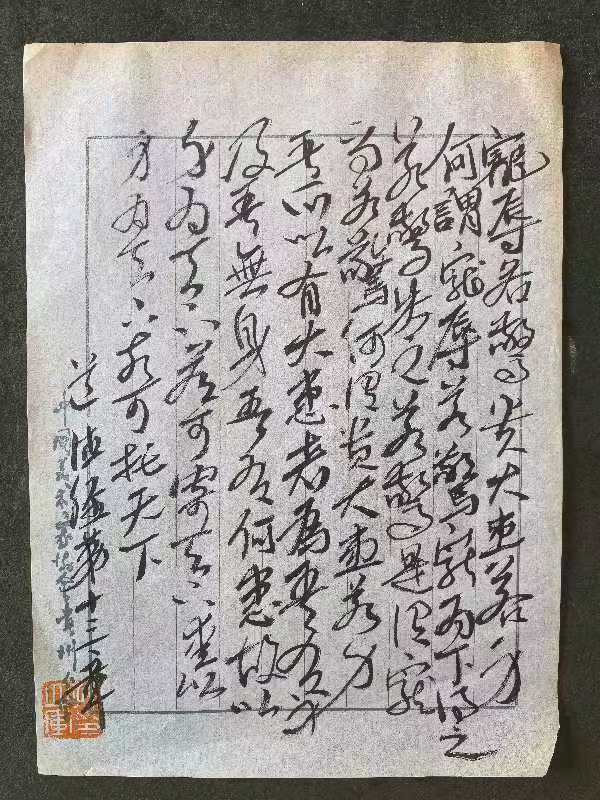 寵辱若驚貴大患若身
何謂寵辱若驚寵為下得之
若驚失之若驚是謂寵
辱若驚何謂貴大患若身
吾所以有大患者為吾有身
及吾無身吾有何患故以
身為天下若可寄天下愛以
身為天下若可托天下
道德經第十三章